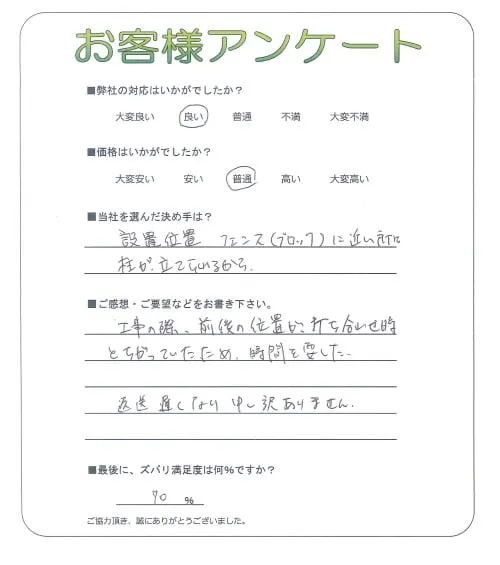 お客様アンケート
■弊社の対応はいかがでしたか？
大変良い 良い 普通 不満 大変不満
■価格はいかがでしたか？
大変安い 安い 普通 高い 大変高い
■当社を選んだ決め手は？
設置位置 フェンス(ブロック)に近い所に
柱が立てれるから.
■ご感想・ご要望などをお書き下さい。
工事の際、前後の位置が、打ち合わせ時
とちがっていたため、時間を要した.
返送遅くなり申し訳ありません.
■最後に、ズバリ満足度は何%ですか？
70 %
ご協力頂き、誠にありがとうございました。